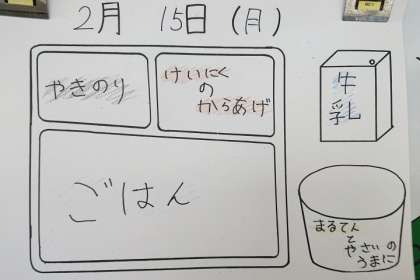 2月 15日(月)
やきのり
けいにく
の
からあげ
牛
乳
ごはん
まるてん
と
やさいの
うまに